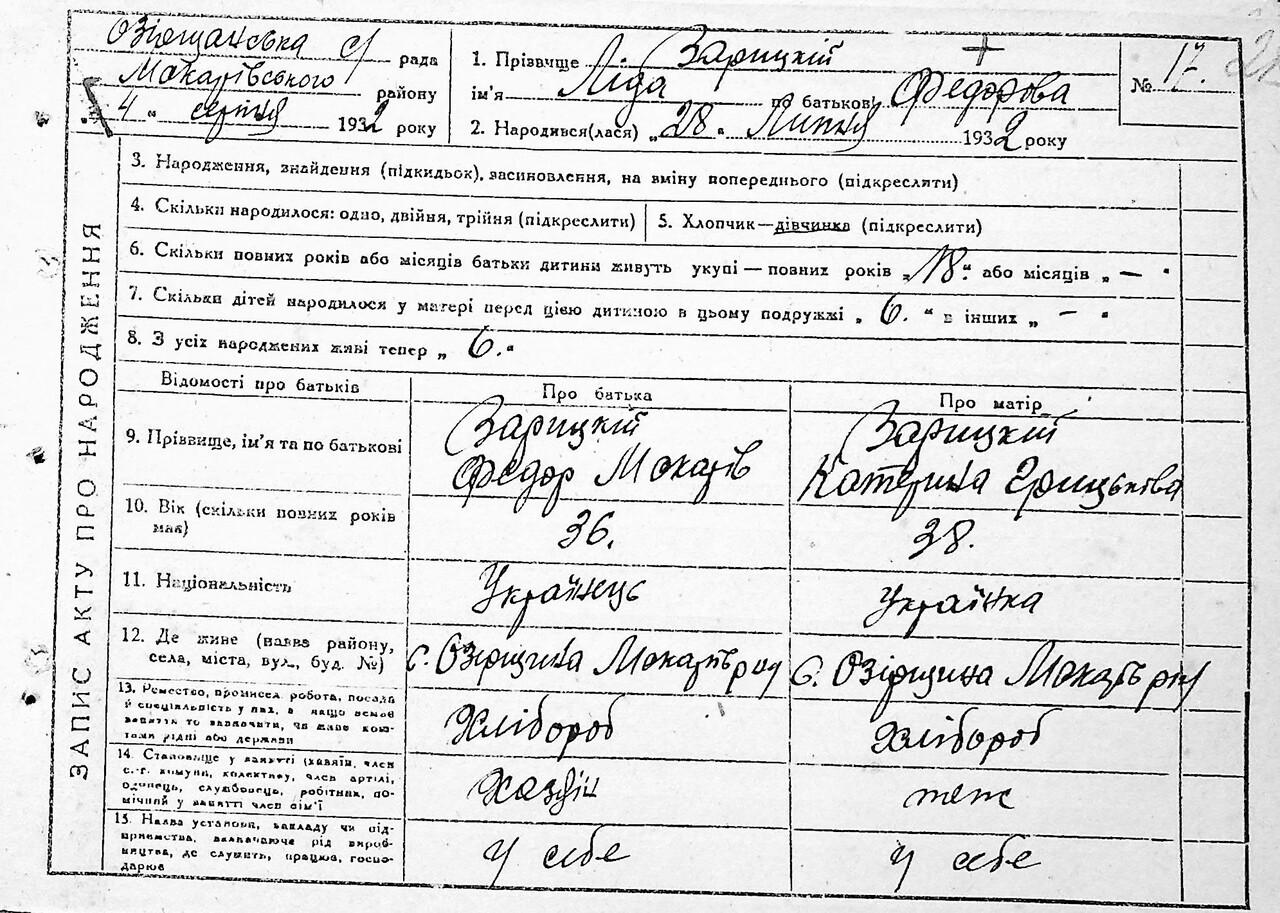 Озірщанська с/рада
Макарівського району
"4" серпня 1932 року
1. Прізвище Зарицкій
ім'я Ліда по батькові Федорова
2. Народився(лася) „28" Липня 1932 року
№ 17.
ЗАПИС АКТУ ПРО НАРОДЖЕННЯ
3. Народження, знайдення (підкидьок), засиновлення, на зміну попереднього (підкреслити)
4. Скільки народилося: одно, двійня, трійня (підкреслити)
5. Хлопчик—дівчинка (підкреслити)
6. Скільки повних років або місяців батьки дитини живуть укупі — повних років „18." або місяців „ — "
7. Скільки дітей народилося у матері перед цією дитиною в цьому подружжі „ 6. " в інших „ — "
8. З усіх народжених живі тепер „ 6. "
Відомості про батьків
Про батька
Про матір
9. Прізвище, ім'я та по батькові
Зарицкій
Федор Макарів
Зарицкій
Катерина Грицькова
10. Вік (скільки повних років
має)
36.
38.
11. Національність
Українець
Українка
12. Де живе (назва району,
села, міста, вул., буд. №)
с. Озірщина Макарів рну
с. Озірщина Макарів рну
13. Ремество, промисел, робота, посада
й спеціяльність у них, а якщо немає
заняття то зазначити, чи живе кош-
тами рідні або держави
Хлібороб
Хлібороб
14. Становище у занятті (хазяїн, член
с.-г. комуни, колективу, член артілі,
одинець, службовець, робітник, по-
мічний у занятті член сім'ї
Хазяїн
теж
15. Назва установи, закладу чи під-
приємства, визначаючи рід вироб-
ництва, де служить, працює, госпо-
дарює
у себе
у себе